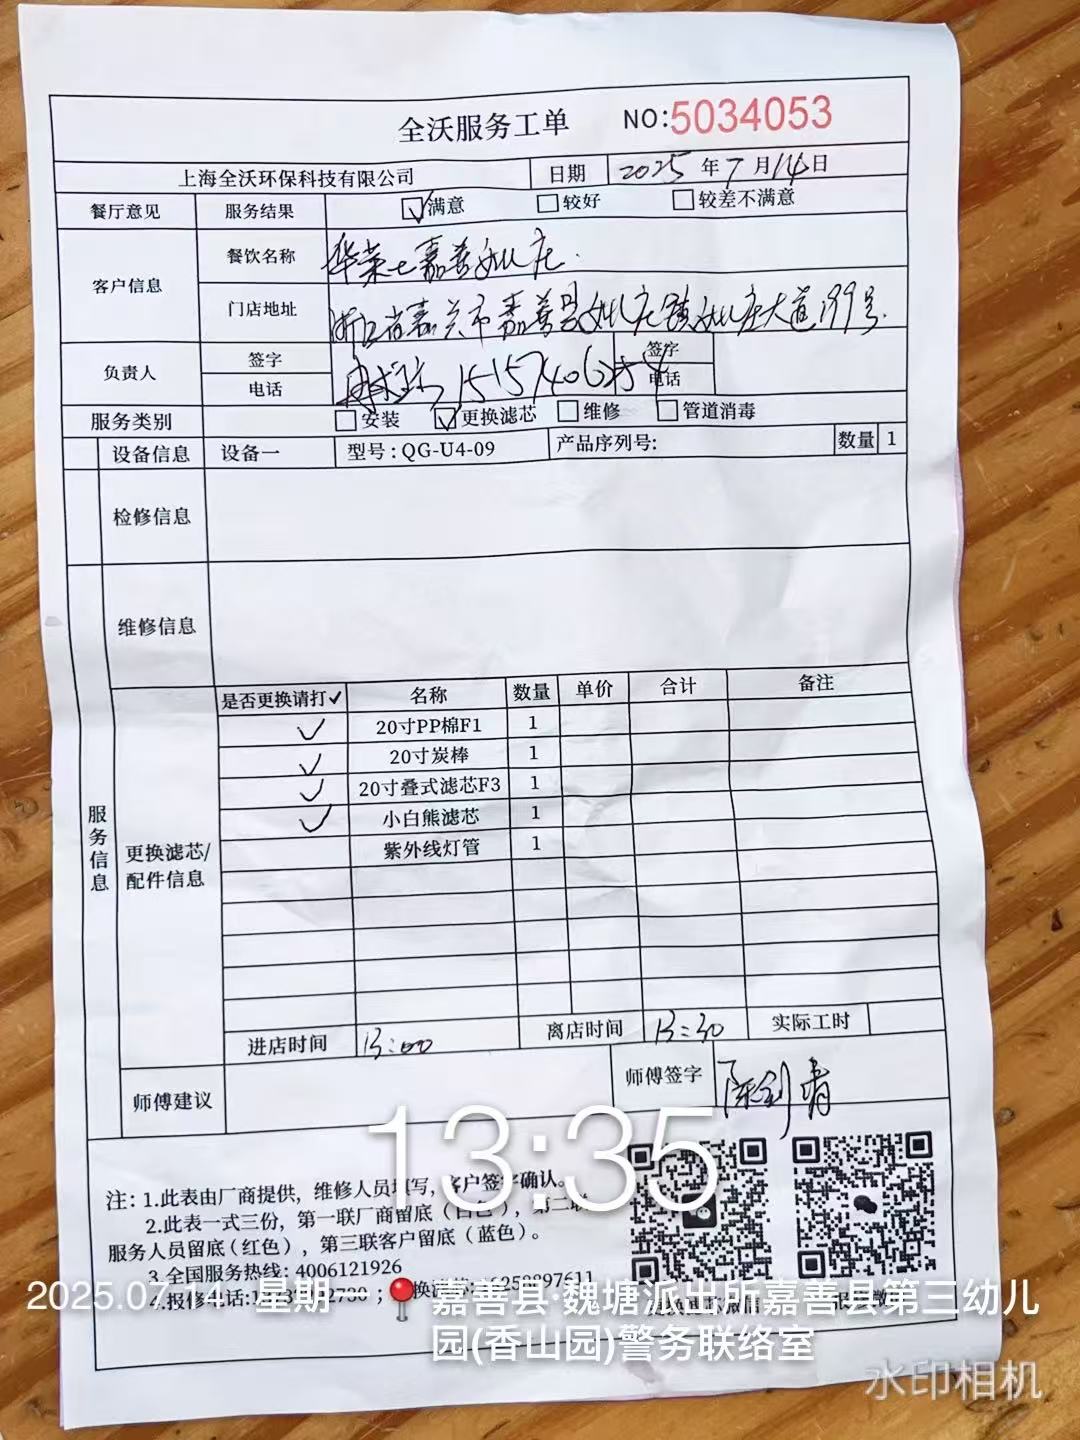 全沃服务工单 NO:5034053
上海全沃环保科技有限公司 日期 2025年7月14日
餐厅意见 服务结果 满意 较好 较差不满意
客户信息 餐饮名称 华莱士嘉善姚庄
门店地址 浙江省嘉兴市嘉善县姚庄镇姚庄大道199号
负责人 签字 签字
电话 电话
服务类别 安装 更换滤芯 维修 管道消毒
设备信息 设备一 型号:QG-U4-09 产品序列号: 数量 1
检修信息
维修信息
服务信息
更换滤芯/
配件信息
是否更换请打✓ 名称 数量 单价 合计 备注
✓ 20寸PP棉F1 1
✓ 20寸炭棒 1
✓ 20寸叠式滤芯F3 1
✓ 小白熊滤芯 1
紫外线灯管 1
进店时间 13:00 离店时间 13:30 实际工时
师傅建议 师傅签字
13:35
注:1.此表由厂商提供，维修人员填写，客户签字确认。
2.此表一式三份，第一联厂商留底(白色)，第二联
服务人员留底(红色)，第三联客户留底(蓝色)。
3.全国服务热线:4006121926
4.报修电话:
2025.07.14 星期一 嘉善县·魏塘派出所嘉善县第三幼儿
园(香山园)警务联络室
水印相机